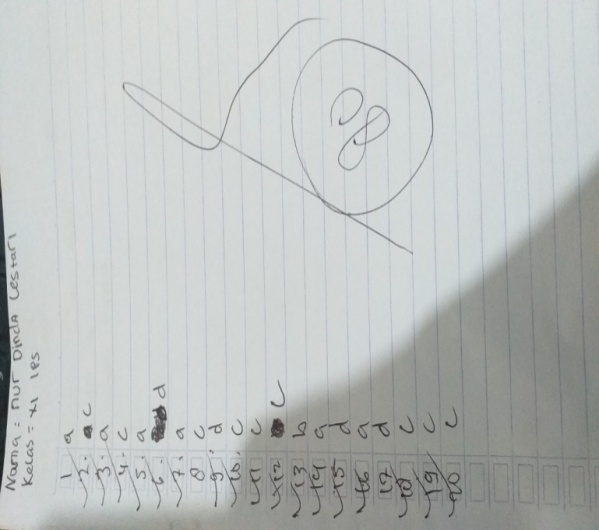 Nama : nur Dinda Lestari
Kelas = XI IPS
1 a
2. c
3. a
4. c
5. a
6. d
7. a
8 c
9. d
10. c
11 c
12 c
13 b
14 a
15 d
16 a
17 d
18 c
19 c
20 c
80